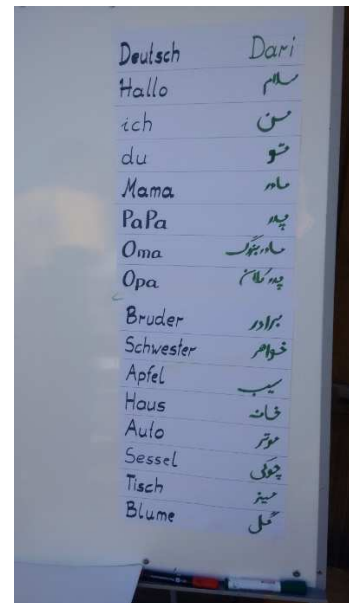 Deutsch Dari
Hallo سلام
ich من
du تو
Mama مادر
PaPa پدر
Oma مادر بزرگ
Opa پدر کلان
Bruder برادر
Schwester خواهر
Apfel سیب
Haus خانه
Auto موتر
Sessel چوکی
Tisch میز
Blume گل